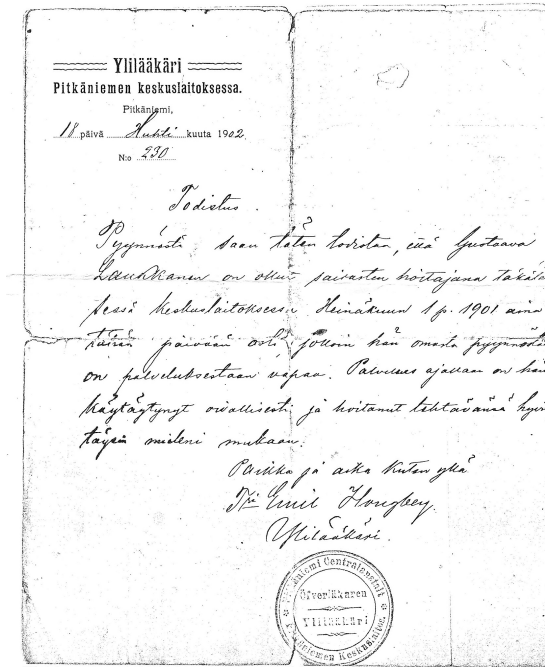 Ylilääkäri
Pitkäniemen keskuslaitoksessa.
Pitkäniemi,
18 päivä Huhti kuuta 1902.
N:o 230
Todistus.
Pyynnöstä saan täten todistaa, että Gustaava
Laukkanen on ollut sairasten hoitajana täkälä
sessä keskuslaitoksessa Heinäkuun 1 p. 1901 aina
tähän päivään asti, jolloin hän omasta pyynnöstä
on palveluksestaan vapaa. Palvelus ajallaan on hän
käytäytynyt oivallisesti ja hoitanut tehtävänsä hyvin
täysin mieleni mukaan.
Paikka ja aika kuten yllä
Emil Hougberg.
Ylilääkäri.
Pitkäniemi Centralanstalt
Öfverläkaren
Ylilääkäri
Pitkäniemen Keskuslaitos.